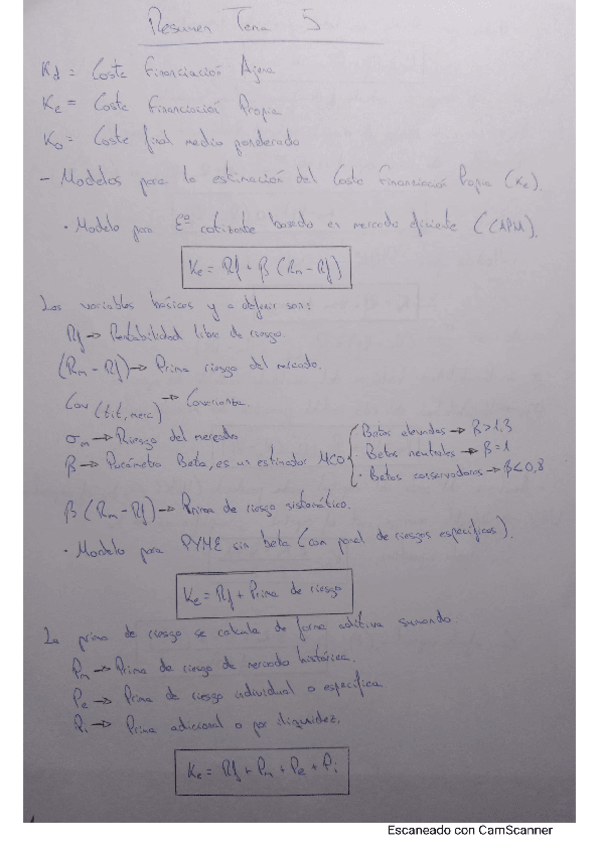 Resumen Tema 5
Kd = Coste Financiación Ajena
Ke = Coste Financiación Propia
Ko = Coste final medio ponderado
- Modelos para la estimación del Coste Financiación Propia (Ke).
· Modelo para Eª cotizante basado en mercado eficiente (CAPM).
Ke = Rf + β (Rm - Rf)
Las variables básicas y a definir son:
Rf → Rentabilidad libre de riesgo.
(Rm - Rf) → Prima riesgo del mercado.
Cov (tit, merc) → Covarianza.
σm → Riesgo del mercado
β → Parámetro Beta, es un estimador MCO
Betas elevadas → β > 1.3
Betas neutrales → β = 1
· Betas conservadoras → β < 0,8
β (Rm - Rf) → Prima de riesgo sistemático.
· Modelo para PYME sin beta (con panel de riesgos específicos).
Ke = Rf + Prima de riesgo
La prima de riesgo se calcula de forma aditiva sumando.
Pm → Prima de riesgo de mercado histórica.
Pe → Prima de riesgo individual o específica
Pi → Prima adicional o por iliquidez.
Ke = Rf + Pm + Pe + Pi
Escaneado con CamScanner